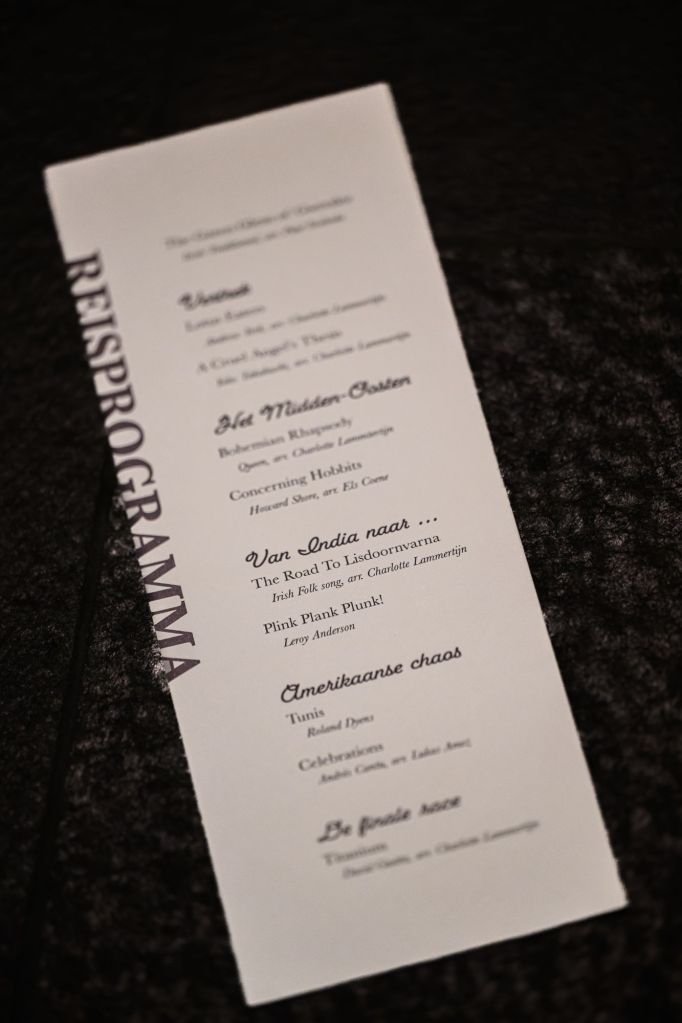 REISPROGRAMMA
Vertrek
A Cruel Angel's Thesis
arr. Charlotte Lammertijn
Het Midden-Oosten
Bohemian Rhapsody
Queen, arr. Charlotte Lammertijn
Concerning Hobbits
Howard Shore, arr. Els Coene
Van India naar ...
The Road To Lisdoornvarna
Irish Folk song, arr. Charlotte Lammertijn
Plink Plank Plunk!
Leroy Anderson
Amerikaanse chaos
Tunis
Roland Dyens
Celebrations
arr. Lukas
De finale race
Titanium
David Guetta, arr. Charlotte Lammertijn